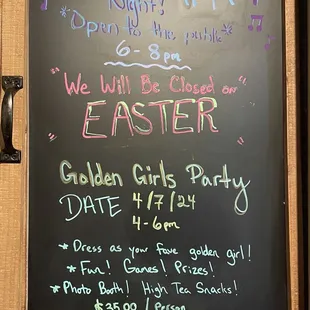 Night!
*Open to the public*
6-8pm
"We Will Be Closed on
"EASTER"
Golden Girls Party
DATE 4/7/24
4-6pm
* Dress as your fave golden girl!
* Fun! Games! Prizes!
* Photo Booth! High Tea Snacks!
$35.00 / Person